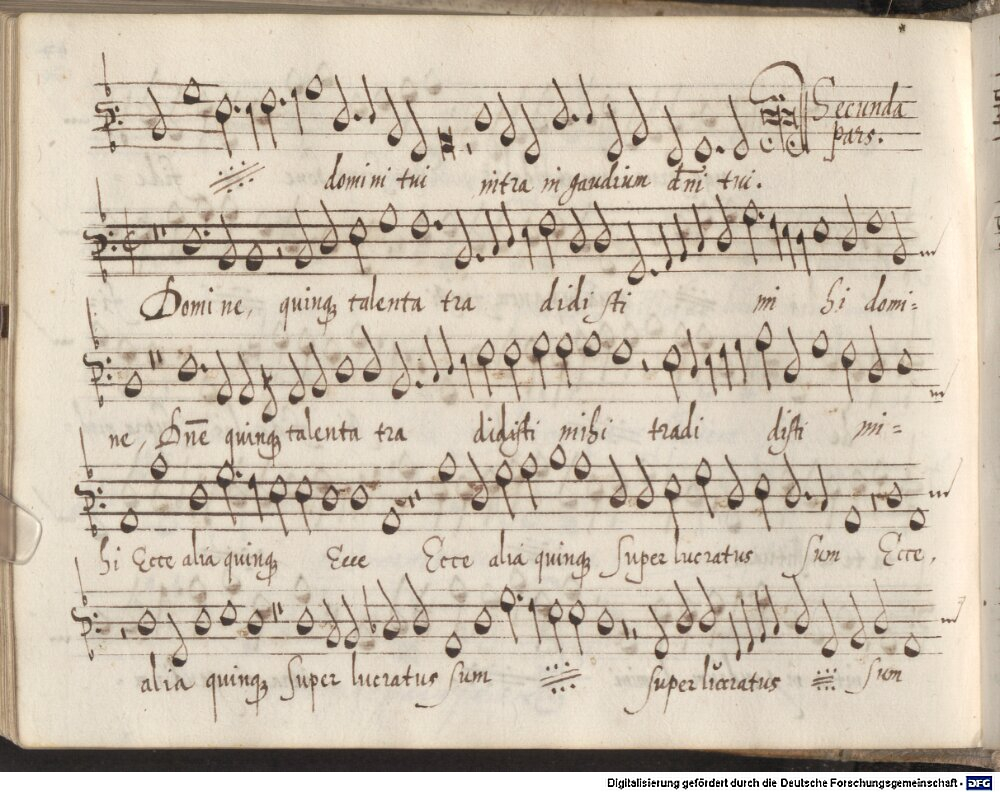 Secunda
pars.
domini tui intra in gaudium dn̄i tui.
Domine, quinqȝ talenta tra didisti mi hi domi=
ne, Dn̄e quinqȝ talenta tra didisti mihi tradi disti mi=
hi Ecce alia quinqȝ Ecce Ecce alia quinqȝ super lucratus sum Ecce,
alia quinqȝ super lucratus sum super lucratus sum
Digitalisierung gefördert durch die Deutsche Forschungsgemeinschaft - DFG